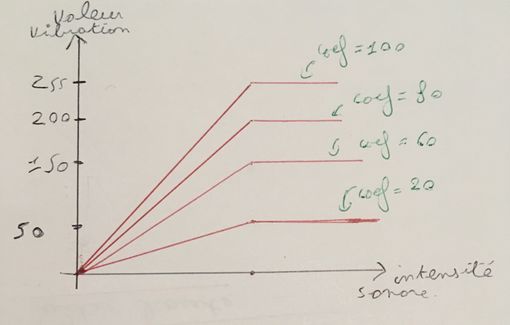 Valeur
vibration
255
coef = 100
200
coef = 80
150
coef = 60
50
coef = 20
intensité
sonore.